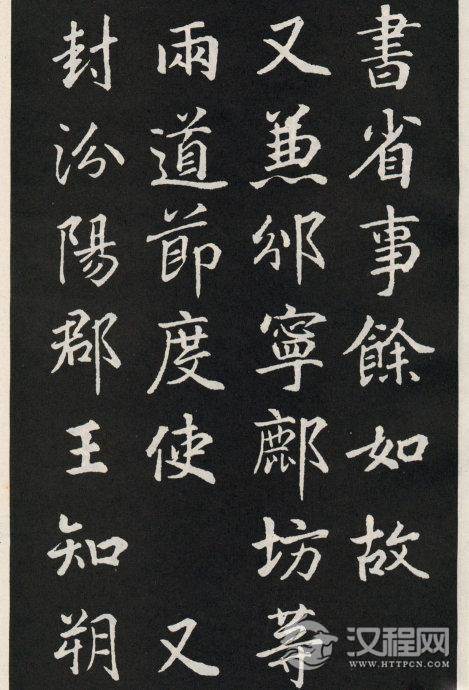 書省事餘如故
又兼邠寧鄜坊等
兩道節度使 又
封汾陽郡王知朔
汉程网
WWW.HTTPCN.COM